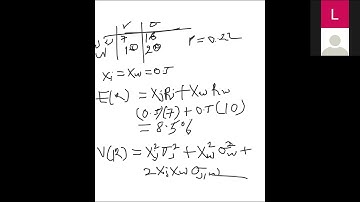 r σ
J 7 16
W 10 20
ρ = 0.22
Xj = Xw = 0.5
E(R) = XjRj + XwRw
(0.5)(7) + 0.5(10)
= 8.5%
V(R) = Xj²σj² + Xw²σw² +
2XjXwσj,w
L